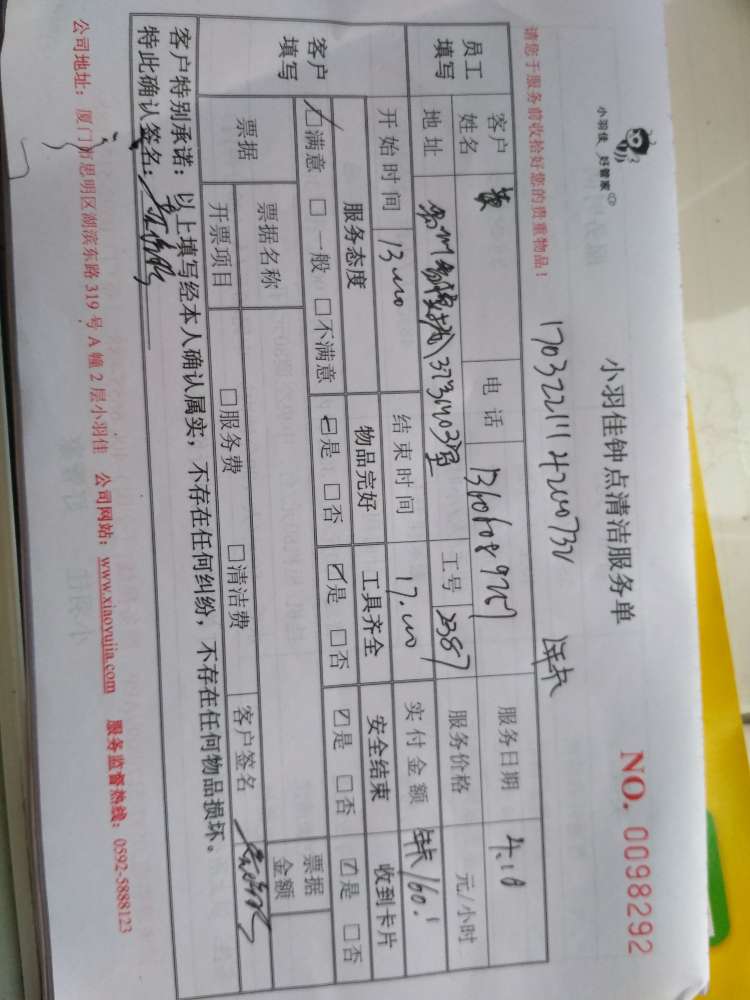 小羽佳 好管家
小羽佳钟点清洁服务单
NO. 0098292
请您于服务前收拾好您的贵重物品!
员工填写
客户姓名 黄 电话 服务日期 4.18
地址 工号 2387 服务价格 元/小时
开始时间 13:00 结束时间 17:00 实付金额 160
客户填写
服务态度 物品完好 工具齐全 安全结束 收到卡片
☑满意 □一般 □不满意 ☑是 □否 ☑是 □否 ☑是 □否 ☑是 □否
票据 票据名称 票据金额
开票项目 □服务费 □清洁费 客户签名
客户特别承诺:以上填写经本人确认属实,不存在任何纠纷,不存在任何物品损坏。
特此确认签名:
公司地址:厦门市思明区湖滨东路 319 号 A 幢 2 层小羽佳 公司网站:www.xiaoyujia.com 服务监督热线:0592-5888123